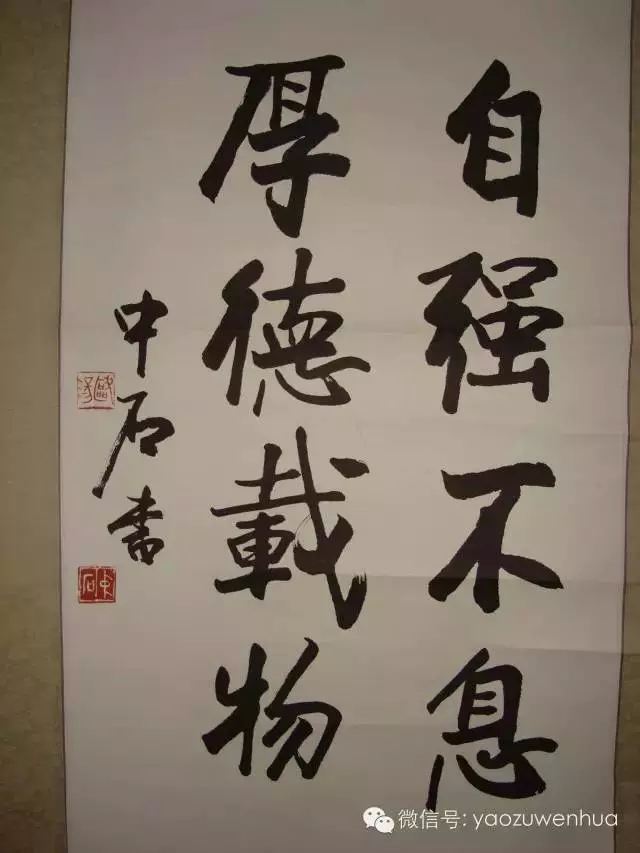 自强不息
厚德載物
中石書
中石
微信号: yaozuwenhua